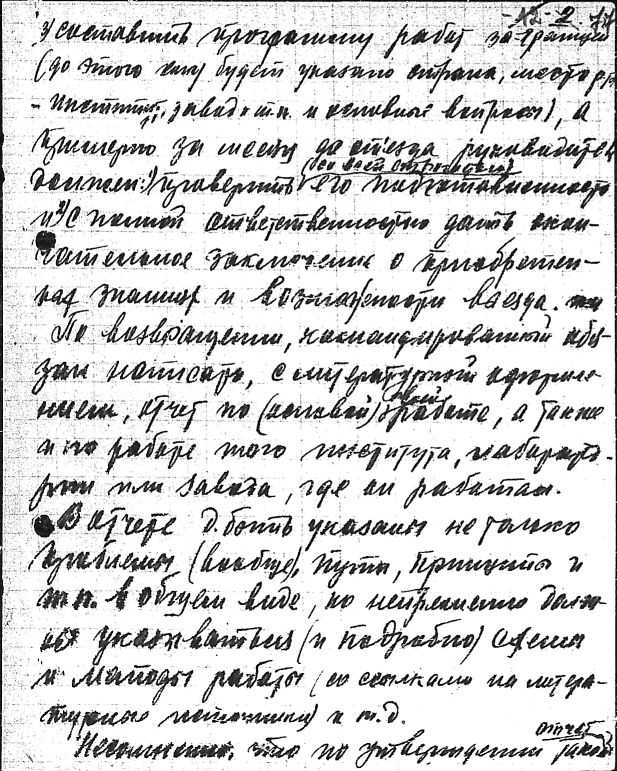 - 12 - 2. 77
у составить программу работ за границей
(до этого ему будет указано страна, место р
- Институт, завод и т.п. и основные вопросы), а
примерно за месяц до отъезда руководитель
(со всей строгостью)
должен: 1) проверить его подготовленность
и 2) с полной ответственностью дать окон-
чательное заключение о приобретен-
ных знаниях и возможности выезда.
По возвращении, командированный обя-
зан написать, с литературным оформле-
нием, отчет по (основной) своей работе, а также
и по работе того института, лаборато-
рии или завода, где он работал.
В отчете д. быть указаны не только
проблемы (вообще), пути, принципы и
т.п. в общем виде, но непременно долж-
ны указываться (и подробно) схемы
и методы работы (со ссылками на литера-
турные источники) и т.д.
отчет
Несомненно, что по утверждении такой